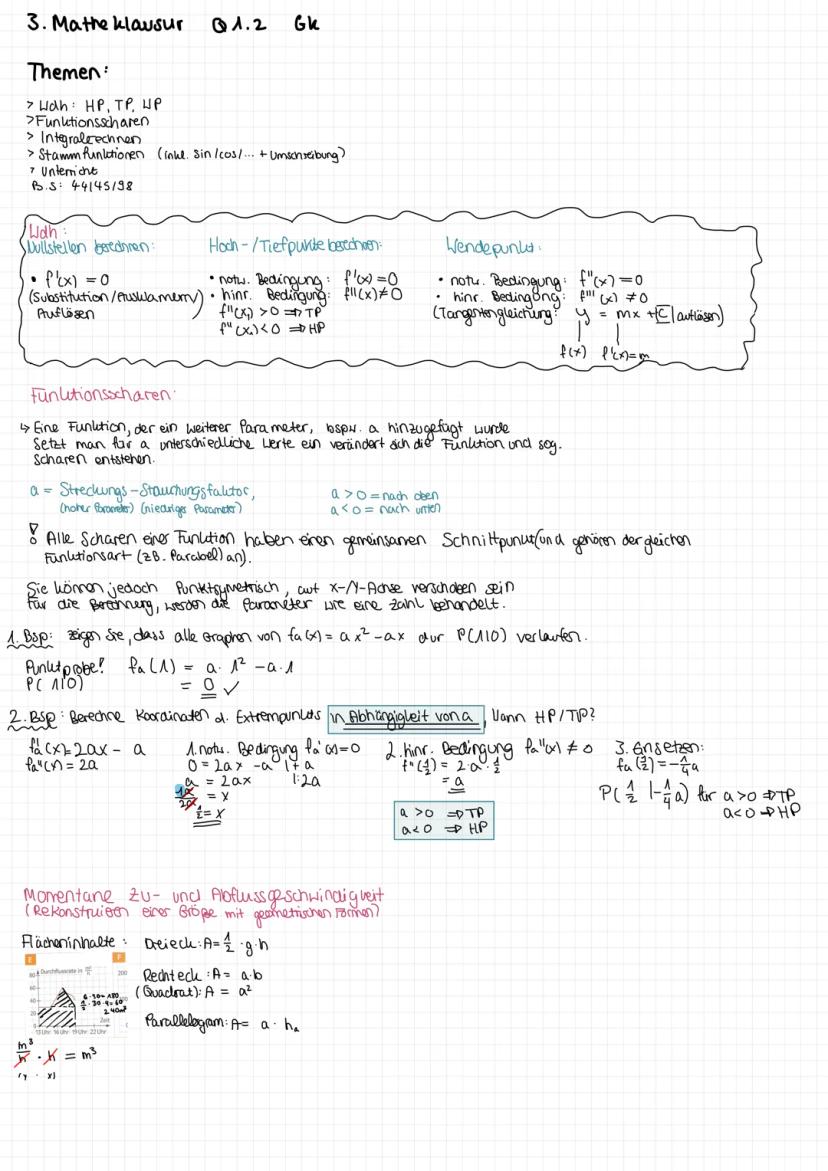 3. Matheklausur Q1.2 Gk
Themen:
> Wdh: HP, TP, WP
> Funktionsscharen
> Integralrechnen
> Stammfunktionen (inkl. Sin/cos/... + Umschreibung)
> Unterricht
B.S: 44/45/98
Wdh:
Nullstellen berechnen:
• f'(x) = 0
(Substitution/Ausklammern)
Auflösen
Hoch-/Tiefpunkte berechnen:
• notw. Bedingung: f'(x) = 0
• hinr. Bedingung: f''(x) ≠ 0
f''(x₁) > 0 ⇒ TP
f''(x₁) < 0 ⇒ HP
Wendepunkt:
• notw. Bedingung: f''(x) = 0
• hinr. Bedingung: f'''(x) ≠ 0
(Tangentengleichung: y = mx + C | auflösen)
f(x) f'(x)=m
Funktionsscharen:
↳ Eine Funktion, der ein weiterer Parameter, bspw. a hinzugefügt wurde
Setzt man für a unterschiedliche Werte ein verändert sich die Funktion und sog.
Scharen entstehen.
a = Streckungs-Stauchungsfaktor,
(hoher Parameter) (niedriger Parameter)
a > 0 = nach oben
a < 0 = nach unten
! Alle Scharen einer Funktion haben einen gemeinsamen Schnittpunkt (und gehören der gleichen
Funktionsart (zB. Parabel) an).
Sie können jedoch Punktsymetrisch, auf x-/y-Achse verschoben sein
Für die Berechnung, werden die Parameter wie eine Zahl behandelt.
1. Bsp: Zeigen Sie, dass alle Graphen von fa(x) = ax² - ax dur P(1|0) verlaufen.
Punktprobe! fa(1) = a · 1² - a · 1
P(1|0) = 0 ✓
2. Bsp: Berechne Koordinaten d. Extrempunkts in Abhängigkeit von a, Wann HP/TP?
fa'(x) = 2ax - a
fa''(x) = 2a
1. notw. Bedingung fa'(x) = 0
0 = 2ax - a | + a
a = 2ax | : 2a
1a/2a = x
1/2 = x
2. hinr. Bedingung fa''(x) ≠ 0
f''(1/2) = 2 · a · 1/2
= a
a > 0 ⇒ TP
a < 0 ⇒ HP
3. Einsetzen:
fa(1/2) = -1/4 a
P(1/2 | -1/4 a) für a > 0 ⇒ TP
a < 0 ⇒ HP
Momentane Zu- und Abflussgeschwindigkeit
(Rekonstruieren einer Größe mit geometrischen Formen)
Flächeninhalte: Dreieck: A = 1/2 · g · h
Rechteck: A = a · b
(Quadrat): A = a²
Parallelogram: A = a · hₐ
E
F
Durchflussrate in m³/h
200
80
60
40
20
0
6·30=180
1/2·30·4=60
240m³
Zeit
13 Uhr 16 Uhr 19 Uhr 22 Uhr
m³/h · h = m³
(y · x)